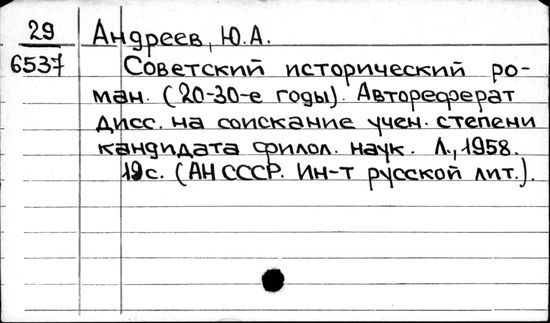 29 Андреев, Ю.А.
6537 Советский исторический ро-
ман. (20-30-е годы). Автореферат
дисс. на соискание учен. степени
кандидата филол. наук. Л., 1958.
19с. (АН СССР. Ин-т русской лит.).